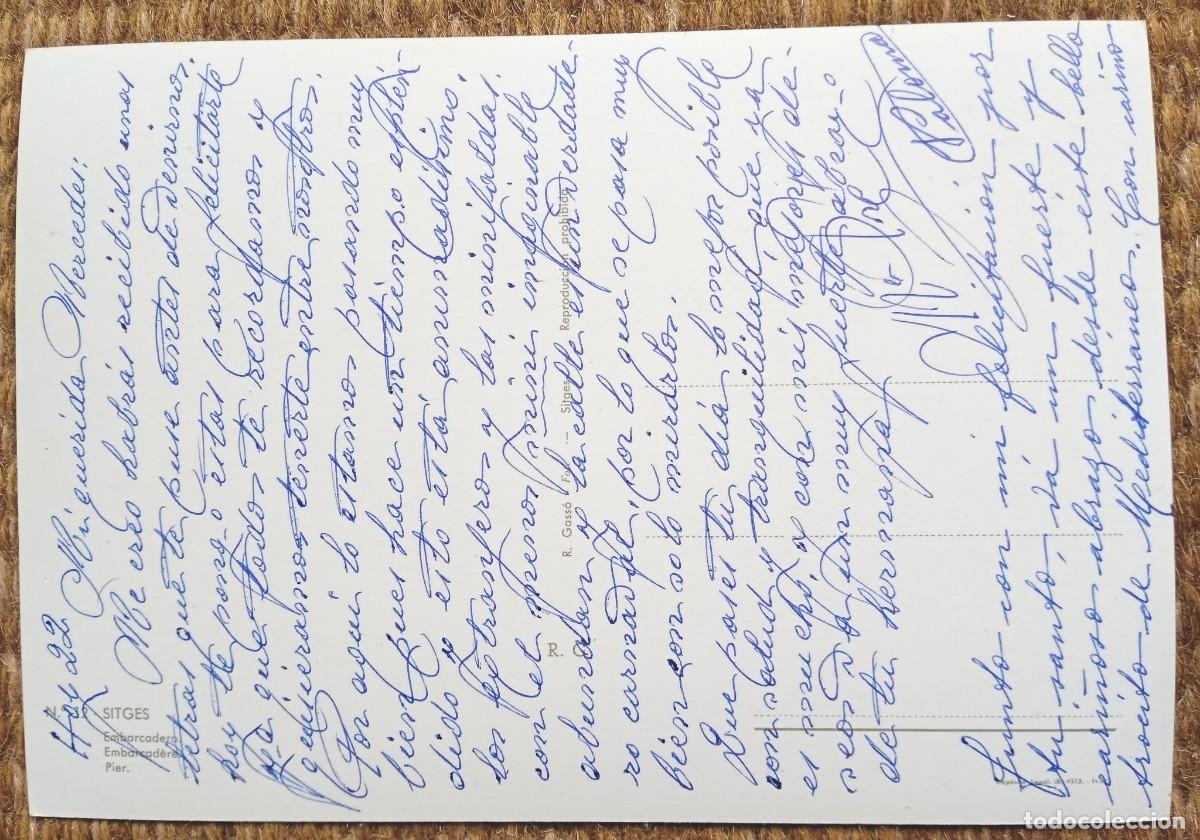 Hoy 22 Mi querida Mercedes:
Me creo habrás recibido unas
letras que te puse antes de venirnos.
hoy te pongo estas para felicitarte
ya que todos te recordamos y
quisieramos tenerte entre nosotros.
Por aquí lo estamos pasando muy
bien pues hace un tiempo esplén-
dido y esto está animadísimo
los extranjeros y las minifaldas!
con el menos mini imaginable
abundan y la calle es un verdade-
ro carnaval, por lo que se pasa muy
bien con solo mirarlos.
Que pases tu día lo mejor posible
con salud y tranquilidad que ya
es mucho y con mis mejores de-
seos va un muy fuerte abrazo
de tu hermana
Paloma
Junto con mi felicitación por
tu santo, vá un fuerte y
cariñoso abrazo desde este bello
trocito de Mediterraneo. Con cariño
N. 32 - SITGES
Embarcadero.
Embarcadère.
Pier.
R. G.
R. Gassó Fot. - Sitges. Reproducción prohibida
todocoleccion